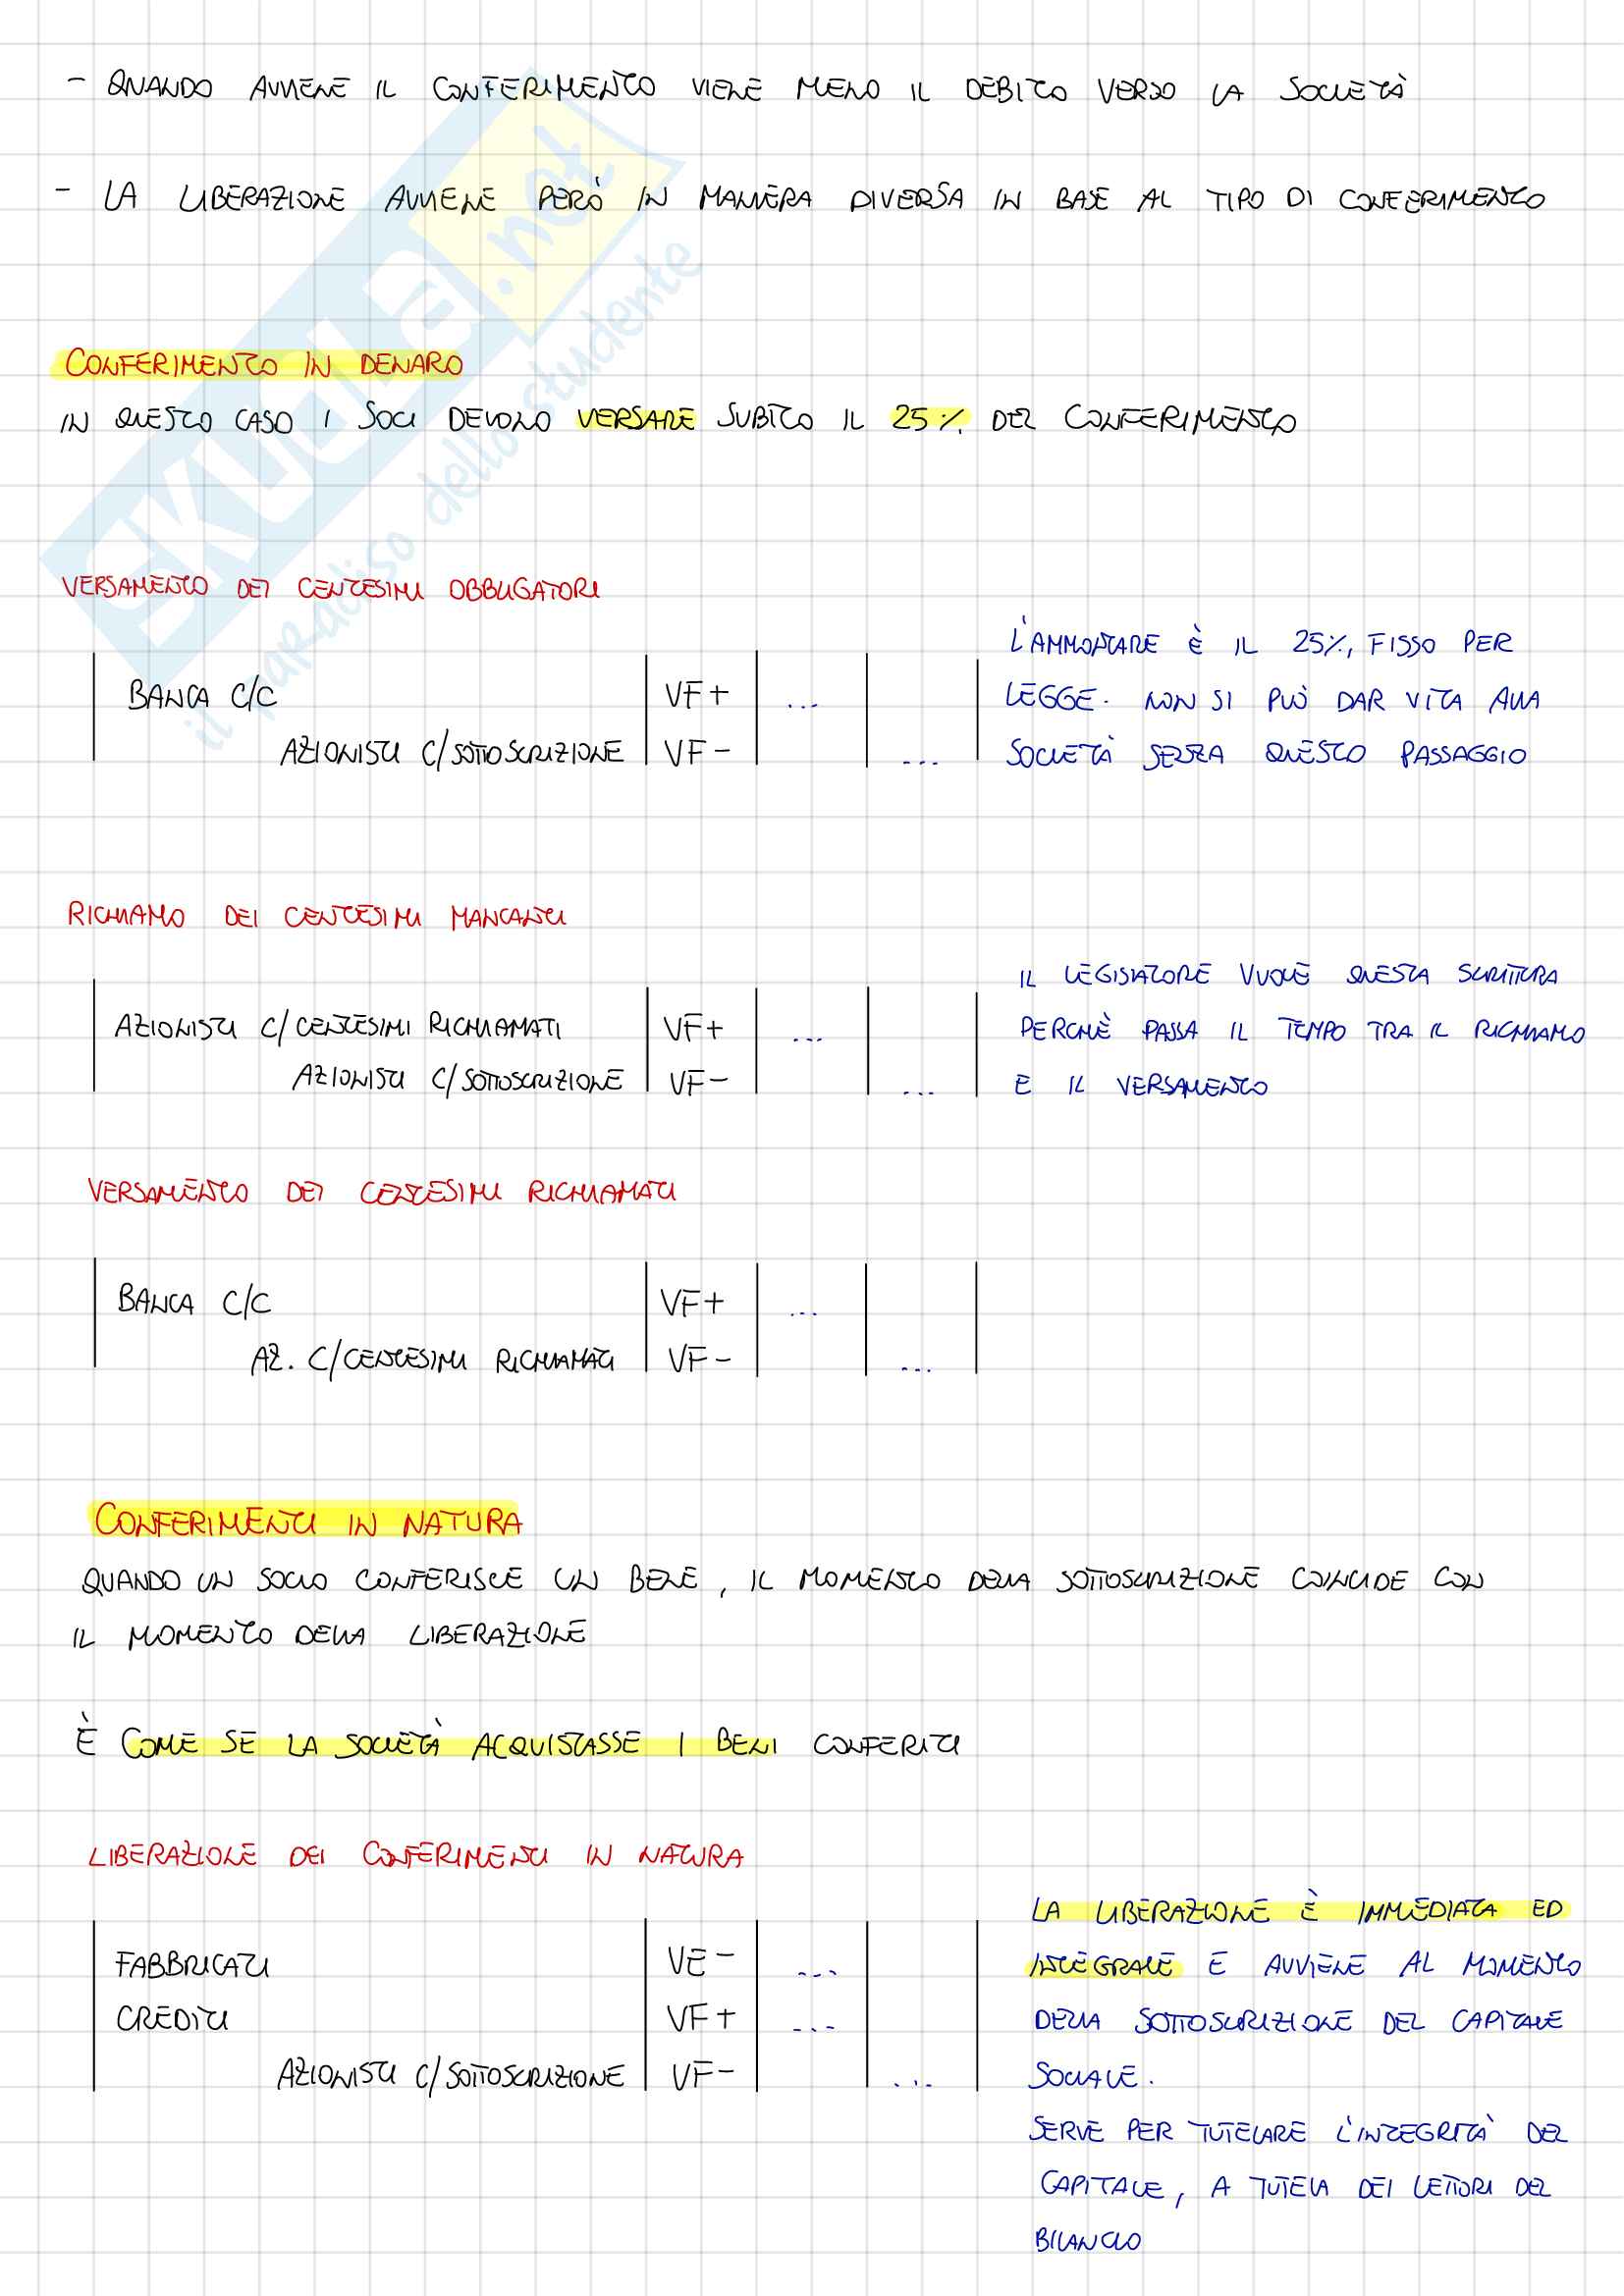 - QUANDO AVVIENE IL CONFERIMENTO VIENE MENO IL DEBITO VERSO LA SOCIETÀ
- LA LIBERAZIONE AVVIENE PERÒ IN MANIERA DIVERSA IN BASE AL TIPO DI CONFERIMENTO
CONFERIMENTO IN DENARO
IN QUESTO CASO I SOCI DEVONO VERSARE SUBITO IL 25% DEL CONFERIMENTO
VERSAMENTO DEI CENTESIMI OBBLIGATORI
L'AMMONTARE È IL 25%, FISSO PER
BANCA C/C VF+ ... LEGGE. NON SI PUÒ DAR VITA ALLA
AZIONISTI C/SOTTOSCRIZIONE VF- ... SOCIETÀ SENZA QUESTO PASSAGGIO
RICHIAMO DEI CENTESIMI MANCANTI
IL LEGISLATORE VUOLE QUESTA SCRITTURA
AZIONISTI C/CENTESIMI RICHIAMATI VF+ ... PERCHÈ PASSA IL TEMPO TRA IL RICHIAMO
AZIONISTI C/SOTTOSCRIZIONE VF- ... E IL VERSAMENTO
VERSAMENTO DEI CENTESIMI RICHIAMATI
BANCA C/C VF+ ...
AZ. C/CENTESIMI RICHIAMATI VF- ...
CONFERIMENTI IN NATURA
QUANDO UN SOCIO CONFERISCE UN BENE, IL MOMENTO DELLA SOTTOSCRIZIONE COINCIDE CON
IL MOMENTO DELLA LIBERAZIONE
È COME SE LA SOCIETÀ ACQUISTASSE I BENI CONFERITI
LIBERAZIONE DEI CONFERIMENTI IN NATURA
LA LIBERAZIONE È IMMEDIATA ED
FABBRICATI VE- ... INTEGRALE E AVVIENE AL MOMENTO
CREDITI VF+ ... DELLA SOTTOSCRIZIONE DEL CAPITALE
AZIONISTI C/SOTTOSCRIZIONE VF- ... SOCIALE.
SERVE PER TUTELARE L'INTEGRITÀ DEL
CAPITALE, A TUTELA DEI LETTORI DEL
BILANCIO
SKUOLA.net
il paradiso dello studente